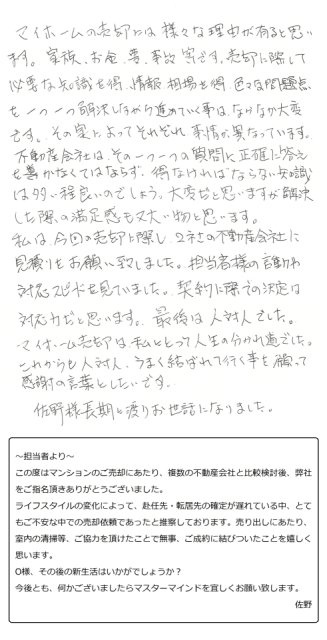 マイホームの売却には様々な理由が有ると思い
ます。家族、お金、夢、事故等です。売却に際して
必要な知識を得、情報、相場を得、色々な問題点
を一つ一つ解決しながら進めていく事はなかなか大変
です。その家によってそれぞれ事情が異なっています。
不動産会社は、その一つ一つの質問に正確に答え
を導かなくてはならず、得なければならない知識
は多い程良いのでしょう。大変だと思いますが解決
した際の満足感も又大い物と思います。
私は、今回の売却に際し、2社の不動産会社に
見積りをお願い致しました。担当者様の言動や
対応スピードを見ていました。契約に際しての決定は
対応力だと思います。最後は人対人でした。
マイホーム売却は私にとって人生の分かれ道でした。
これからも人対人、うまく結ばれて行く事を願って
感謝の言葉としたいです。
佐野様長期に渡りお世話になりました。
～担当者より～
この度はマンションのご売却にあたり、複数の不動産会社と比較検討後、弊社
をご指名頂きありがとうございました。
ライフスタイルの変化によって、赴任先・転居先の確定が遅れている中、とて
もご不安な中での売却依頼であったと推察しております。売り出しにあたり、
室内の清掃等、ご協力を頂けたことで無事、ご成約に結びついたことを嬉しく
思います。
O様、その後の新生活はいかがでしょうか？
今後とも、何かございましたらマスターマインドを宜しくお願い致します。
佐野